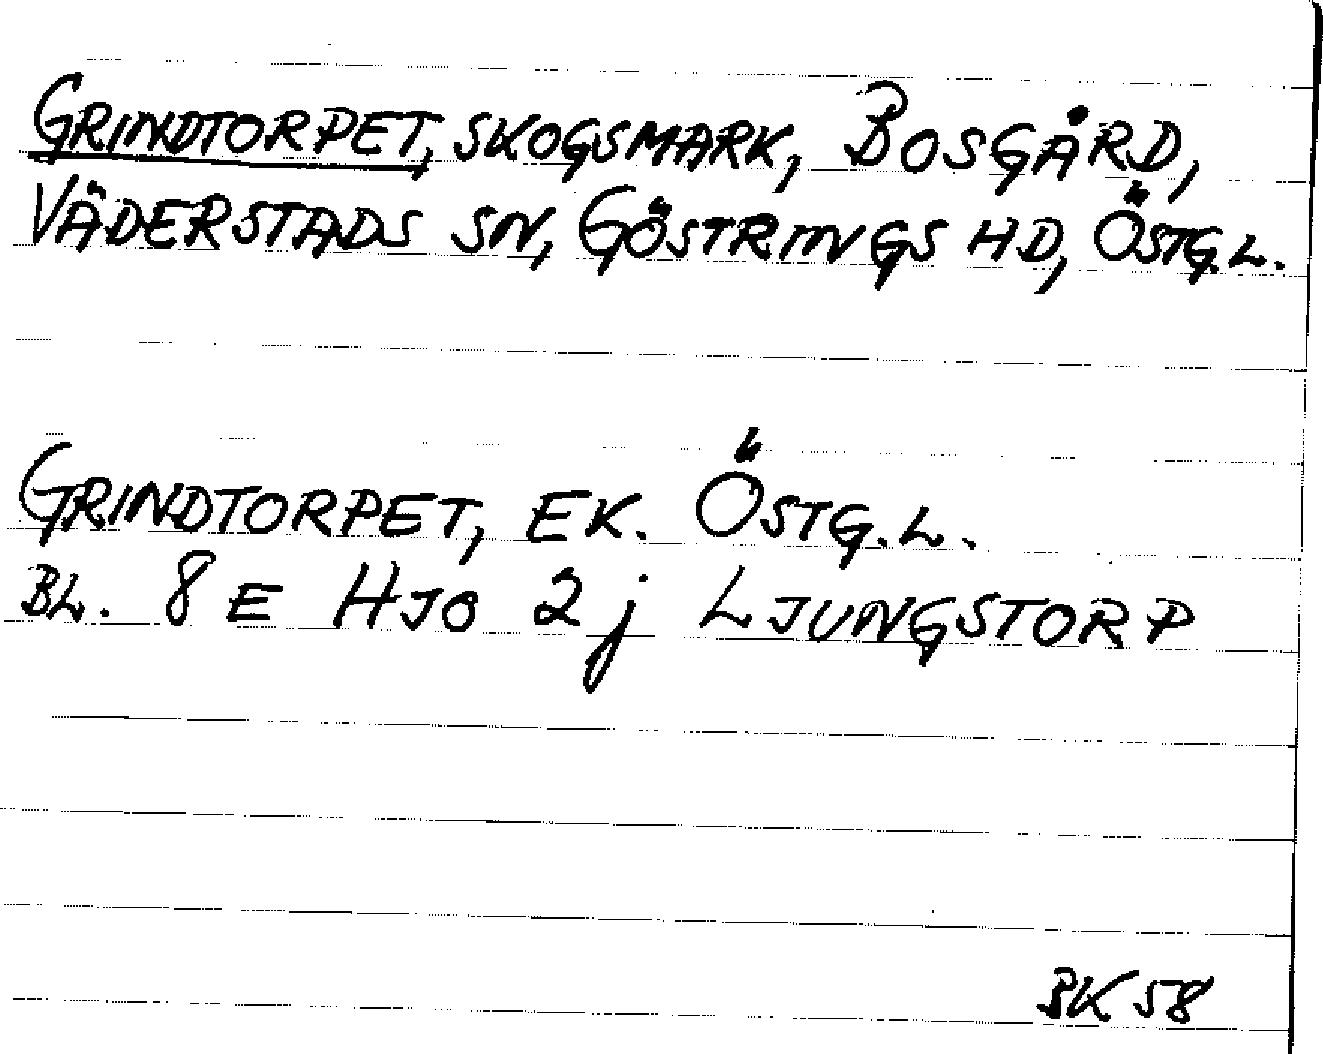 GRINDTORPET, SKOGSMARK, BOSGÅRD,
VÄDERSTADS SN, GÖSTRINGS HD, ÖSTG.L.
GRINDTORPET, EK. ÖSTG.L.
BL. 8 E HJO 2j LJUNGSTORP
BK 58